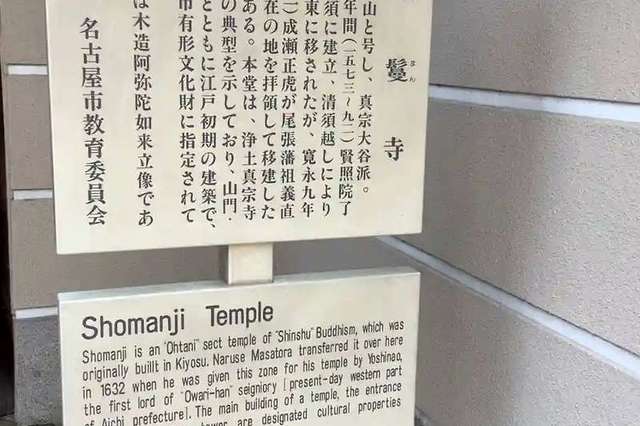 鬘寺
まん
山と号し、真宗大谷派。
年間(一五七三〜九二)賢照院了
須に建立、清須越しにより
東に移されたが、寛永九年
二)成瀬正虎が尾張藩祖義直
在の地を拝領して移建した
ある。本堂は、浄土真宗寺
の典型を示しており、山門・
とともに江戸初期の建築で、
市有形文化財に指定されて
は木造阿弥陀如来立像であ
名古屋市教育委員会
Shomanji Temple
Shomanji is an "Ohtani" sect temple of "Shinshu" Buddhism, which was
originally built in Kiyosu. Naruse Masatora transferred it over here
in 1632 when he was given this zone for his temple by Yoshinao,
the first lord of "Owari-han" seigniory [present-day western part
of Aichi prefecture]. The main building of a temple, the entrance
tower are designated cultural properties